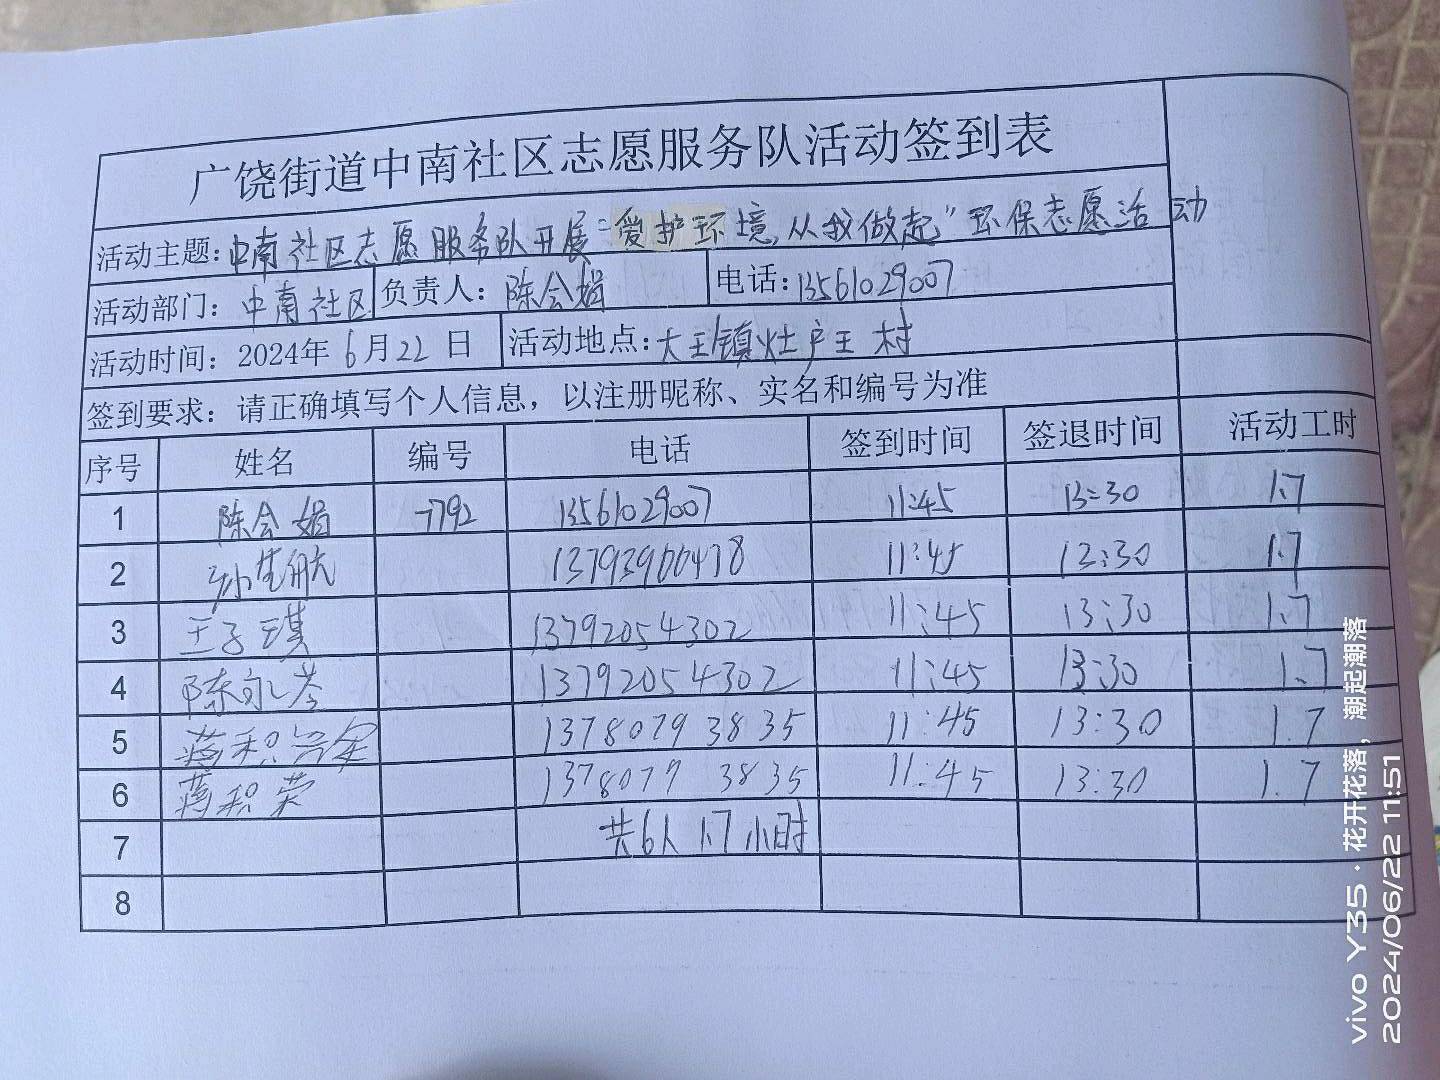 广饶街道中南社区志愿服务队活动签到表
活动主题：中南社区志愿服务队开展“爱护环境，从我做起”环保志愿活动
活动部门：中南社区 负责人：陈会娟 电话：13561029007
活动时间：2024年6月22日 活动地点：大王镇灶户王村
签到要求：请正确填写个人信息，以注册昵称、实名和编号为准
序号 姓名 编号 电话 签到时间 签退时间 活动工时
1 陈会娟 7792 13561029007 11:45 13:30 1.7
2 11:45 13:30 1.7
3 王子琪 13792054302 11:45 13:30 1.7
4 陈永芩 13792054302 11:45 13:30 1.7
5 蒋积 13780793835 11:45 13:30 1.7
6 蒋积荣 13780793835 11:45 13:30 1.7
7 共6人 1.7小时
8
vivo Y35 · 花开花落，潮起潮落
2024/06/22 11:51